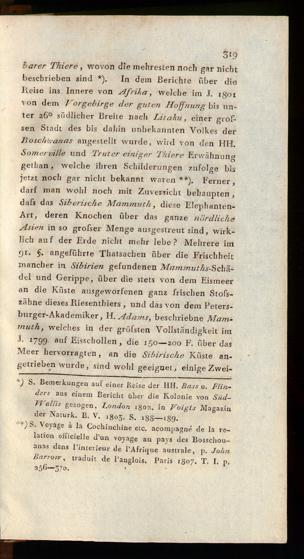 319
barer Thiere, wovon die mehresten noch gar nicht
beschrieben sind *). In dem Berichte über die
Reise ins Innere von Afrika, welche im J. 1801
von dem Vorgebirge der guten Hoffnung bis un-
ter 26° südlicher Breite nach Litahu, einer gros-
sen Stadt des bis dahin unbekannten Volkes der
Boschwanas angestellt wurde, wird von den HH.
Somerville und Truter einiger Thiere Erwähnung
gethan, welche ihren Schilderungen zufolge bis
jetzt noch gar nicht bekannt waren **). Ferner,
darf man wohl noch mit Zuversicht behaupten,
daſs das Siberische Mammuth, diese Elephanten-
Art, deren Knochen über das ganze nördliche
Asien in so groſser Menge ausgestreut sind, wirk-
lich auf der Erde nicht mehr lebe? Mehrere im
91. §. angeführte Thatsachen über die Frischheit
mancher in Sibirien gefundenen Mammuths-Schä-
del und Gerippe, über die stets von dem Eismeer
an die Küste ausgeworfenen ganz frischen Stoſs-
zähne dieses Riesenthiers, und das von dem Peters-
burger-Akademiker, H. Adams, beschriebne Mam-
muth, welches in der gröſsten Vollständigkeit im
J. 1799 auf Eisschollen, die 150—200 F. über das
Meer hervorragten, an die Sibirische Küste an-
getrieben wurde, sind wohl geeignet, einige Zwei-
*) S. Bemerkungen auf einer Reise der HH. Bass u. Flin-
ders aus einem Bericht über die Kolonie von Süd-
Wallis gezogen, London 1802. in Voigts Magazin
der Naturk. B. V. 1803. S. 188—189.
**) S. Voyage à la Cochinchine etc. acompagné de la re-
lation officielle d'un voyage au pays des Bosschou-
anas dans l'interieur de l'Afrique australe, p. John
Barrow, traduit de l'anglois. Paris 1807. T. I. p.
256—370.